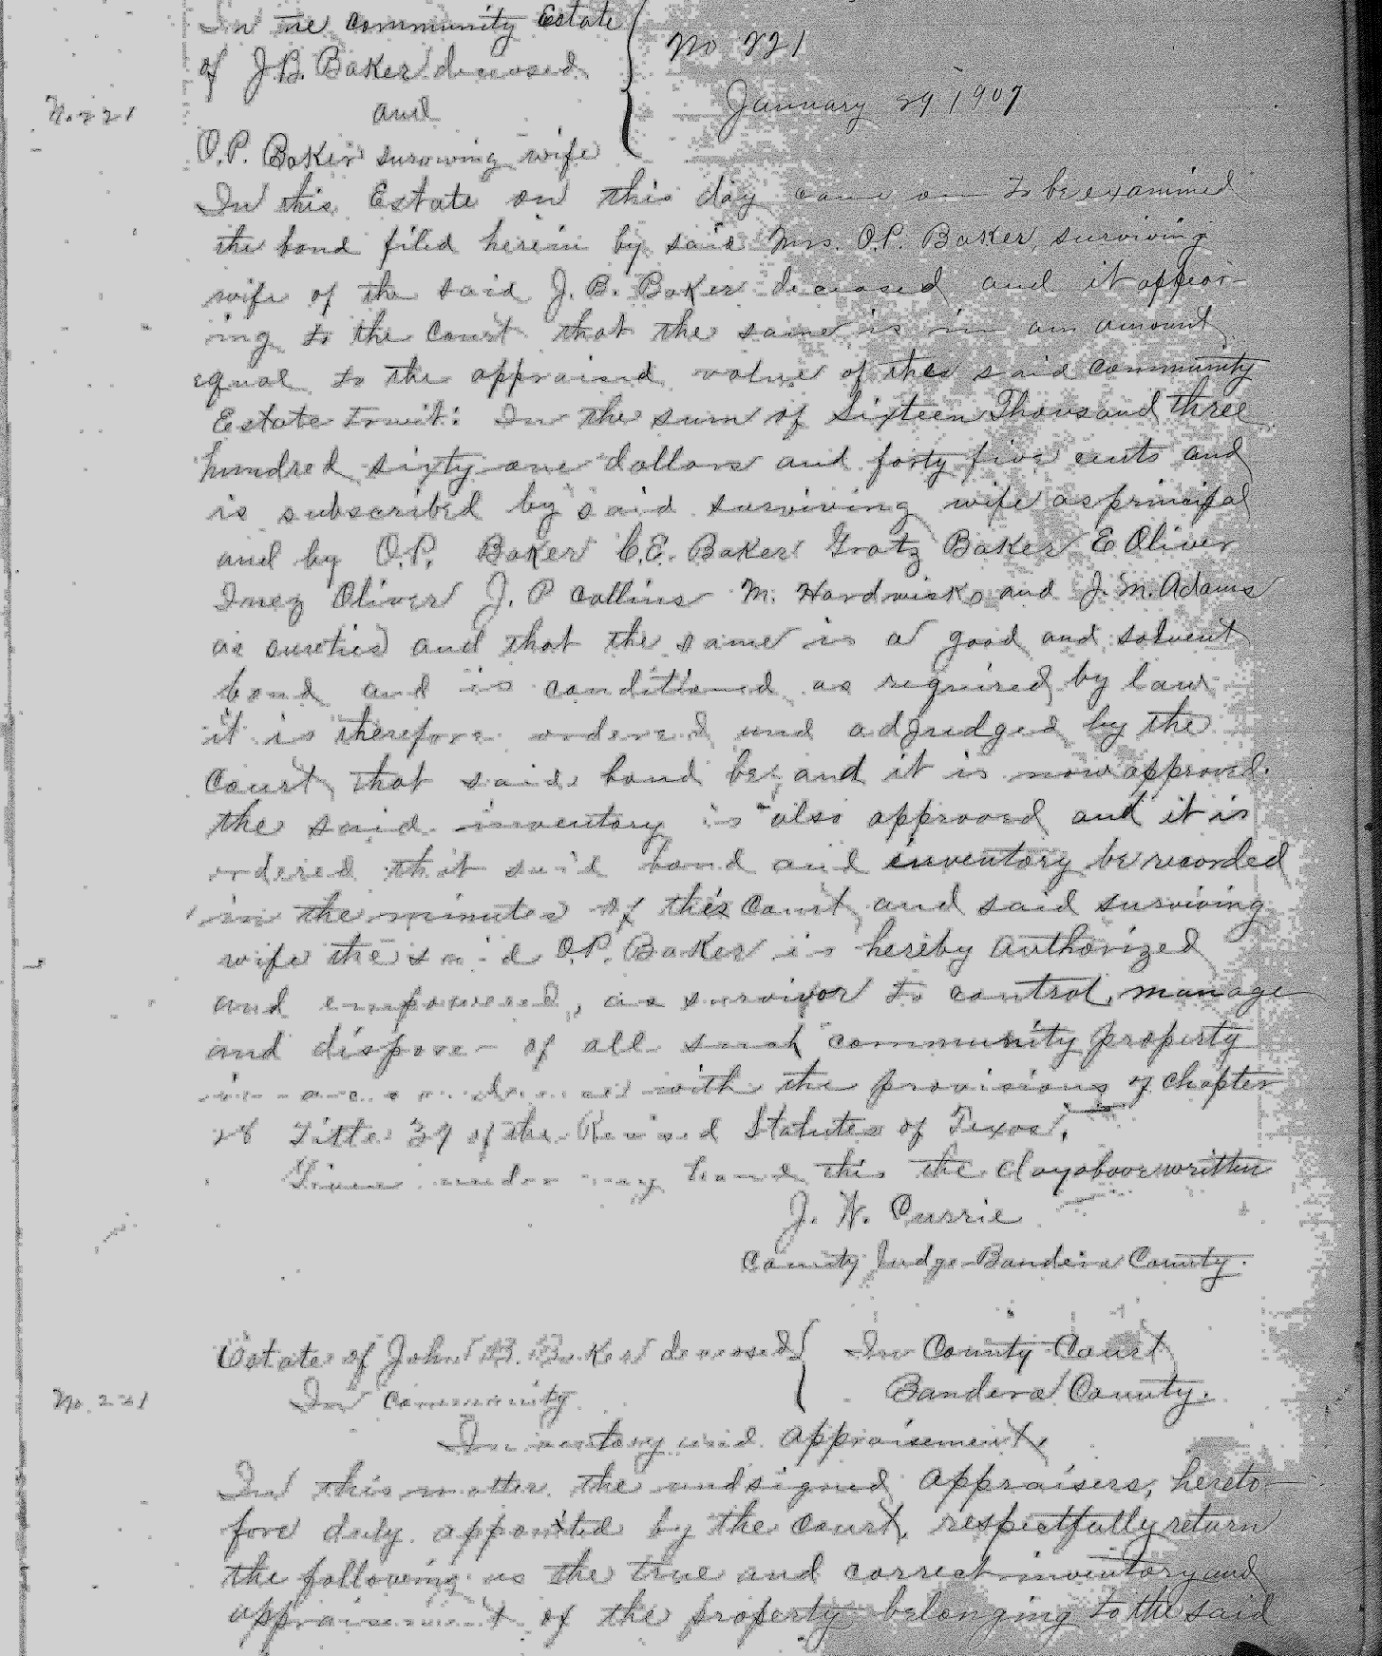 In the community Estate
of J.B. Baker deceased
and
O.P. Baker surviving wife
No 221
January 29 1907
No. 221
In this Estate on this day came on to be examined
the bond filed herein by said Mrs. O.P. Baker, surviving
wife of the said J. B. Baker deceased and it appear-
ing to the Court that the same is in an amount
equal to the appraised value of the said community
Estate towit: In the sum of Sixteen Thousand three
hundred sixty one dollars and forty five cents and
is subscribed by said surviving wife as principal
and by O.P. Baker C.E. Baker Gratz Baker E Oliver
Inez Oliver J. P Collins M. Hardwicks and J. M. Adams
as sureties and that the same is a good and solvent
bond and is conditioned as required by law
it is therefore ordered and adjudged by the
Court that said bond be, and it is now approved.
the said inventory is also approved and it is
ordered that said bond and inventory be recorded
in the minutes of this Court and said surviving
wife the said O.P. Baker is hereby authorized
and empowered, as survivor to control, manage
and dispose of all such community property
in accordance with the provisions of chapter
28 Title 39 of the Revised Statutes of Texas.
Given under my hand this the day above written
J. W. Currie
County Judge Bandera County.
Estate of John B. Baker deceased
In Community
In County Court
Bandera County.
No. 221
Inventory and Appraisement.
In this matter the undsigned appraisers, hereto-
fore duly appointed by the Court, respectfully return
the following as the true and correct inventory and
appraisement of the property belonging to the said